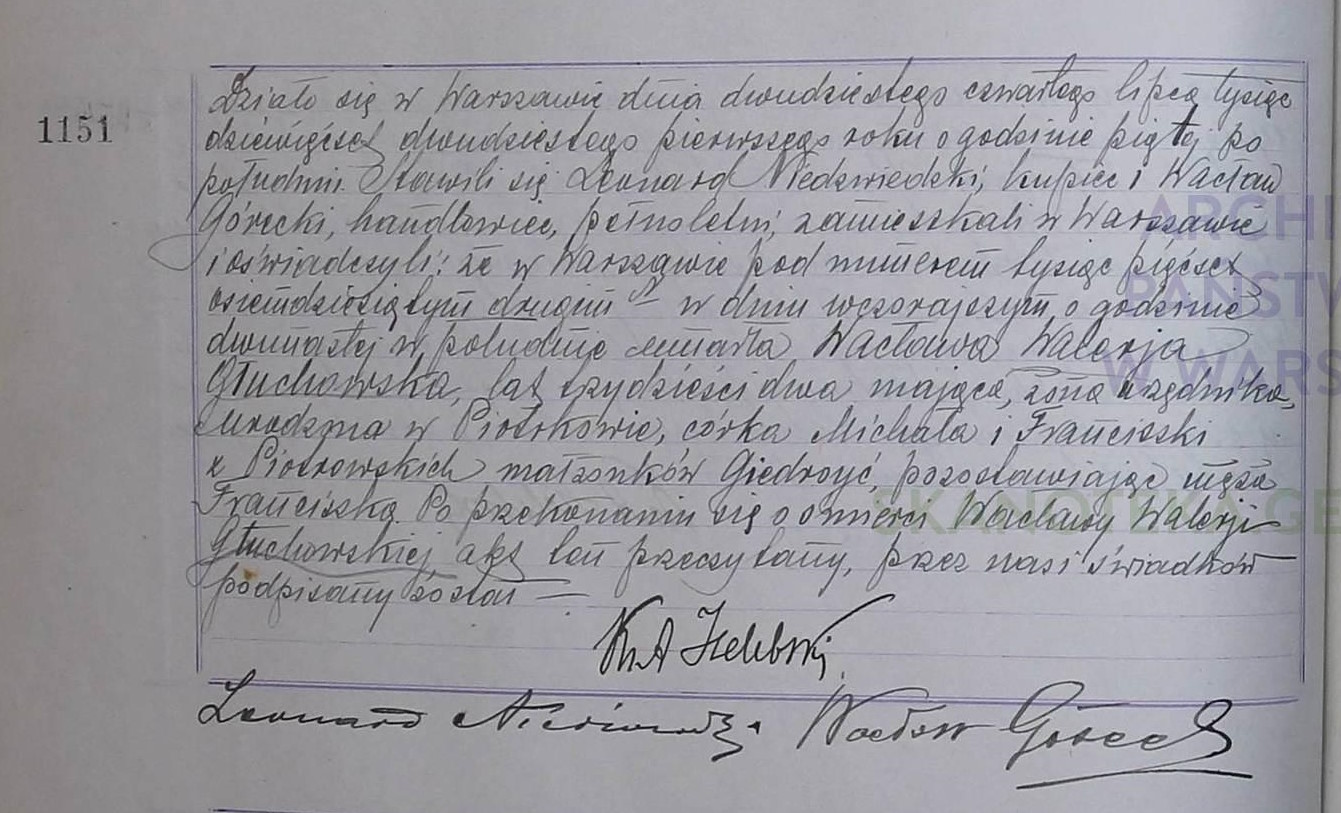 1151
Działo się w Warszawie dnia dwudziestego czwartego lipca tysiąc
dziewięćset dwudziestego pierwszego roku o godzinie piątej po
południu. Stawili się Leonard Niedzwiedzki, kupiec i Wacław
Górecki, handlowiec, pełnoletni, zamieszkali w Warszawie
i oświadczyli: że w Warszawie pod numerem tysiąc pięćset
osiemdziesiątym drugim w dniu wczorajszym o godzinie
dwunastej w południe umarła Wacława Walerja
Głuchowska, lat trzydzieści dwa mająca, żona urzędnika,
urodzona w Piotrkowie, córka Michała i Franciszki
z Piotrowskich małżonków Giedroyć, pozostawiając męża
Franciszka. Po przekonaniu się o śmierci Wacławy Walerji
Głuchowskiej, akt ten przeczytany, przez nas i świadków
podpisany został —
Leonard Wacław Górecki
ARCHI
PAŃSTW
W WARS
SKANOTEKA.GE